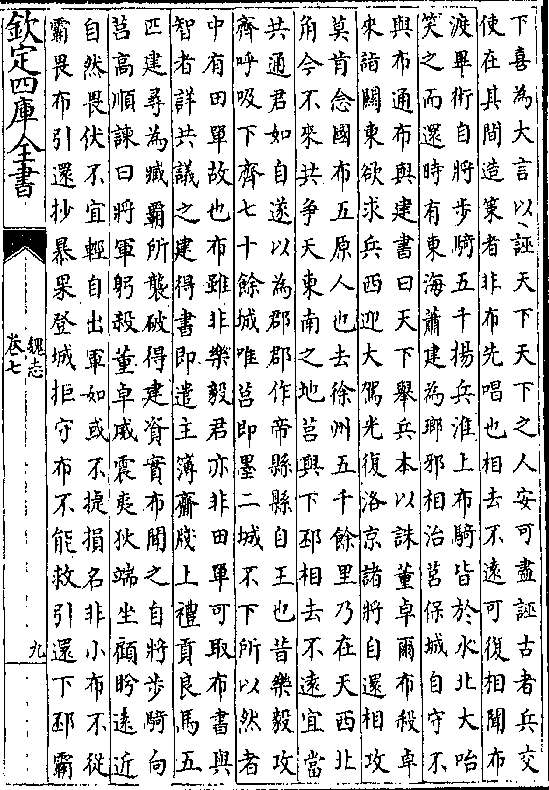 下喜為大言以誣天下天下之人安可盡誣古者兵交
使在其間造策者非布先唱也相去不遠可復相聞布
渡畢術自將步騎五千揚兵淮上布騎皆於水北大咍
笑之而還時有東海蕭建為瑯邪相治莒保城自守不
與布通布與建書曰天下舉兵本以誅董卓爾布殺卓
來詣關東欲求兵西迎大駕光復洛京諸將自還相攻
莫肯念國布五原人也去徐州五千餘里乃在天西北
角今不來共爭天東南之地莒與下邳相去不遠宜當
共通君如自遂以為郡郡作帝縣縣自王也昔樂毅攻
齊呼吸下齊七十餘城唯莒即墨二城不下所以然者
中有田單故也布雖非樂毅君亦非田單可取布書與
智者詳共議之建得書即遣主簿齎牋上禮貢良馬五
匹建尋為臧霸所襲破得建資實布聞之自將步騎向
莒高順諫曰將軍躬殺董卓威震夷狄端坐顧盼遠近
自然畏伏不宜輕自出軍如或不捷損名非小布不從
霸畏布引還抄暴果登城拒守布不能救引還下邳霸
欽定四庫全書
魏志
卷七
九